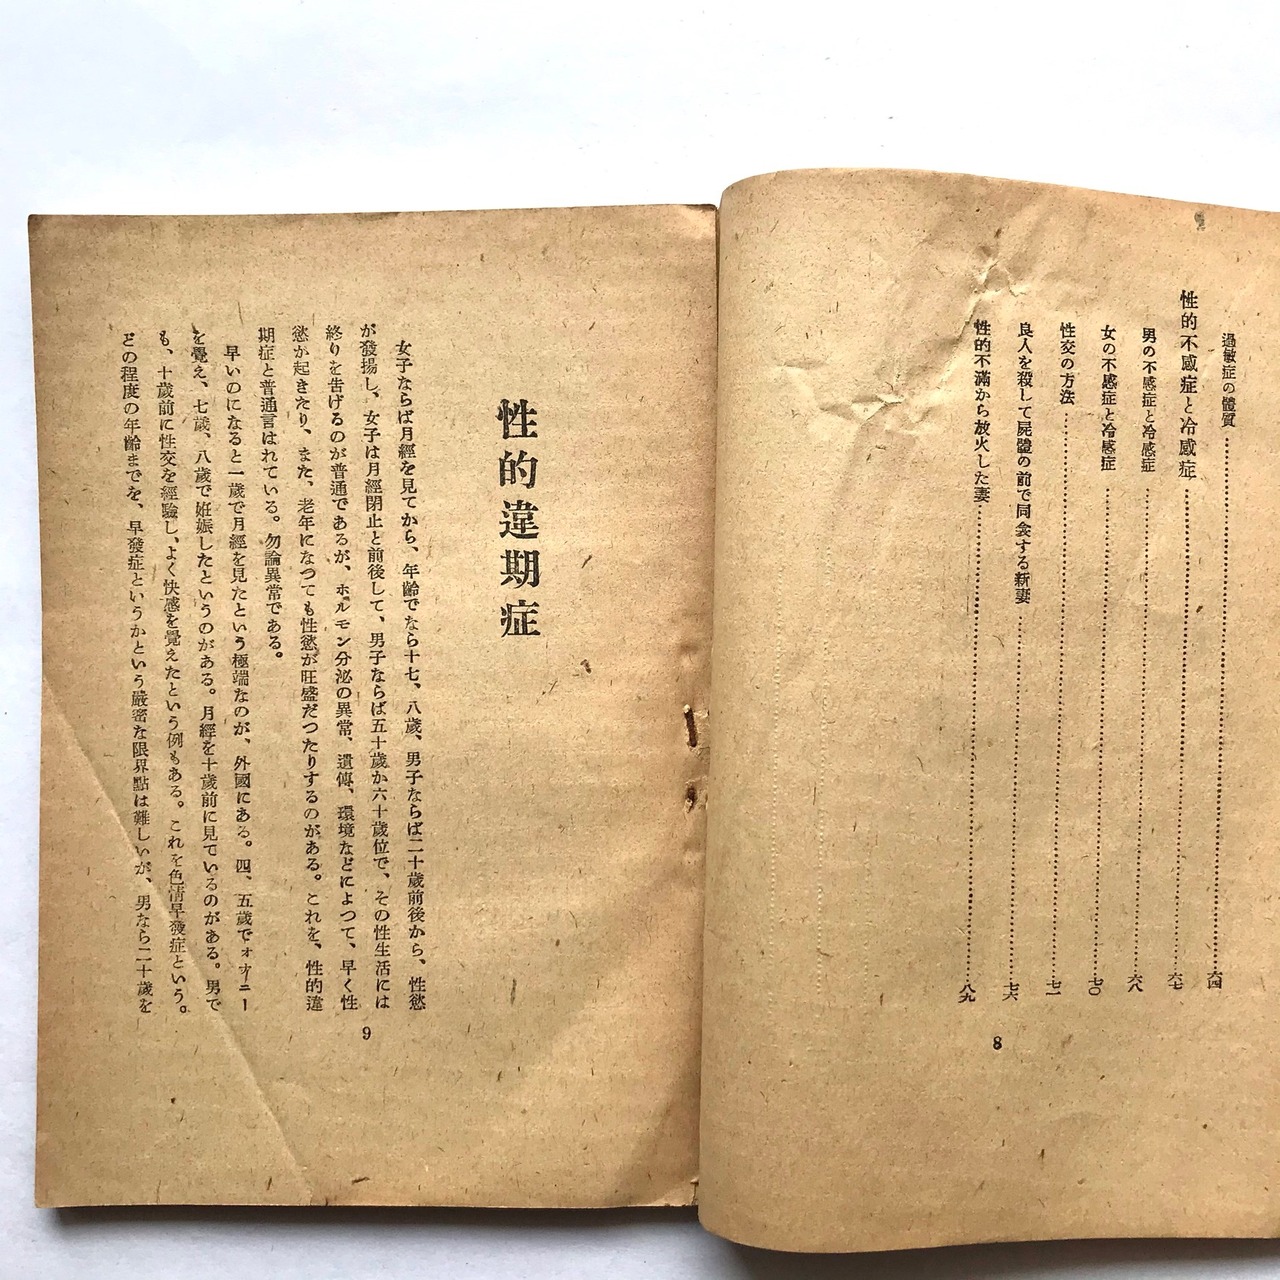 過敏症の體質……六四
性的不感症と冷感症……六七
男の不感症と冷感症……六八
女の不感症と冷感症……七〇
性交の方法……七一
良人を殺して屍體の前で同衾する新妻……七六
性的不滿から放火した妻……八九
8
性的違期症
女子ならば月經を見てから、年齡でなら十七、八歲、男子ならば二十歲前後から、性慾
が發揚し、女子は月經閉止と前後して、男子ならば五十歲か六十歲位で、その性生活には
終りを吿げるのが普通であるが、ホルモン分泌の異常、遺傳、環境などによつて、早く性
慾が起きたり、また、老年になつても性慾が旺盛だつたりするのがある。これを、性的違
期症と普通言はれている。勿論異常である。
早いのになると一歲で月經を見たという極端なのが、外國にある。四、五歲でオナニー
を覺え、七歲、八歲で姙娠したというのがある。月經を十歲前に見ているのがある。男で
も、十歲前に性交を經驗し、よく快感を覺えたという例もある。これを色情早發症という。
どの程度の年齡までを、早發症というかという嚴密な限界點は難しいが、男なら二十歲を
9